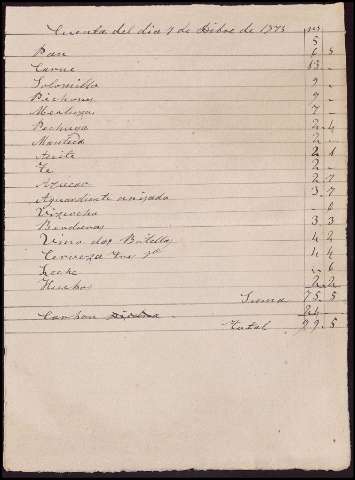 Cuenta del dia 9 de Dibre de 1873
Pan 6 5
Carne 13 -
Solomillo 9 -
Pichones 9 -
Merluza 7 -
Pechuga 2 4
Manteca 2 -
Aceite 2 8
Te 2 -
Azucar 2 7
Aguardiente anisado 3 7
Vizcocho 6
Banderas 3 3
Vino dos Botellas 4 2
Cerveza dos 4 4
Leche - 6
Huebos 2 2
Suma 75 5
Carbon 24 -
Total 99 5